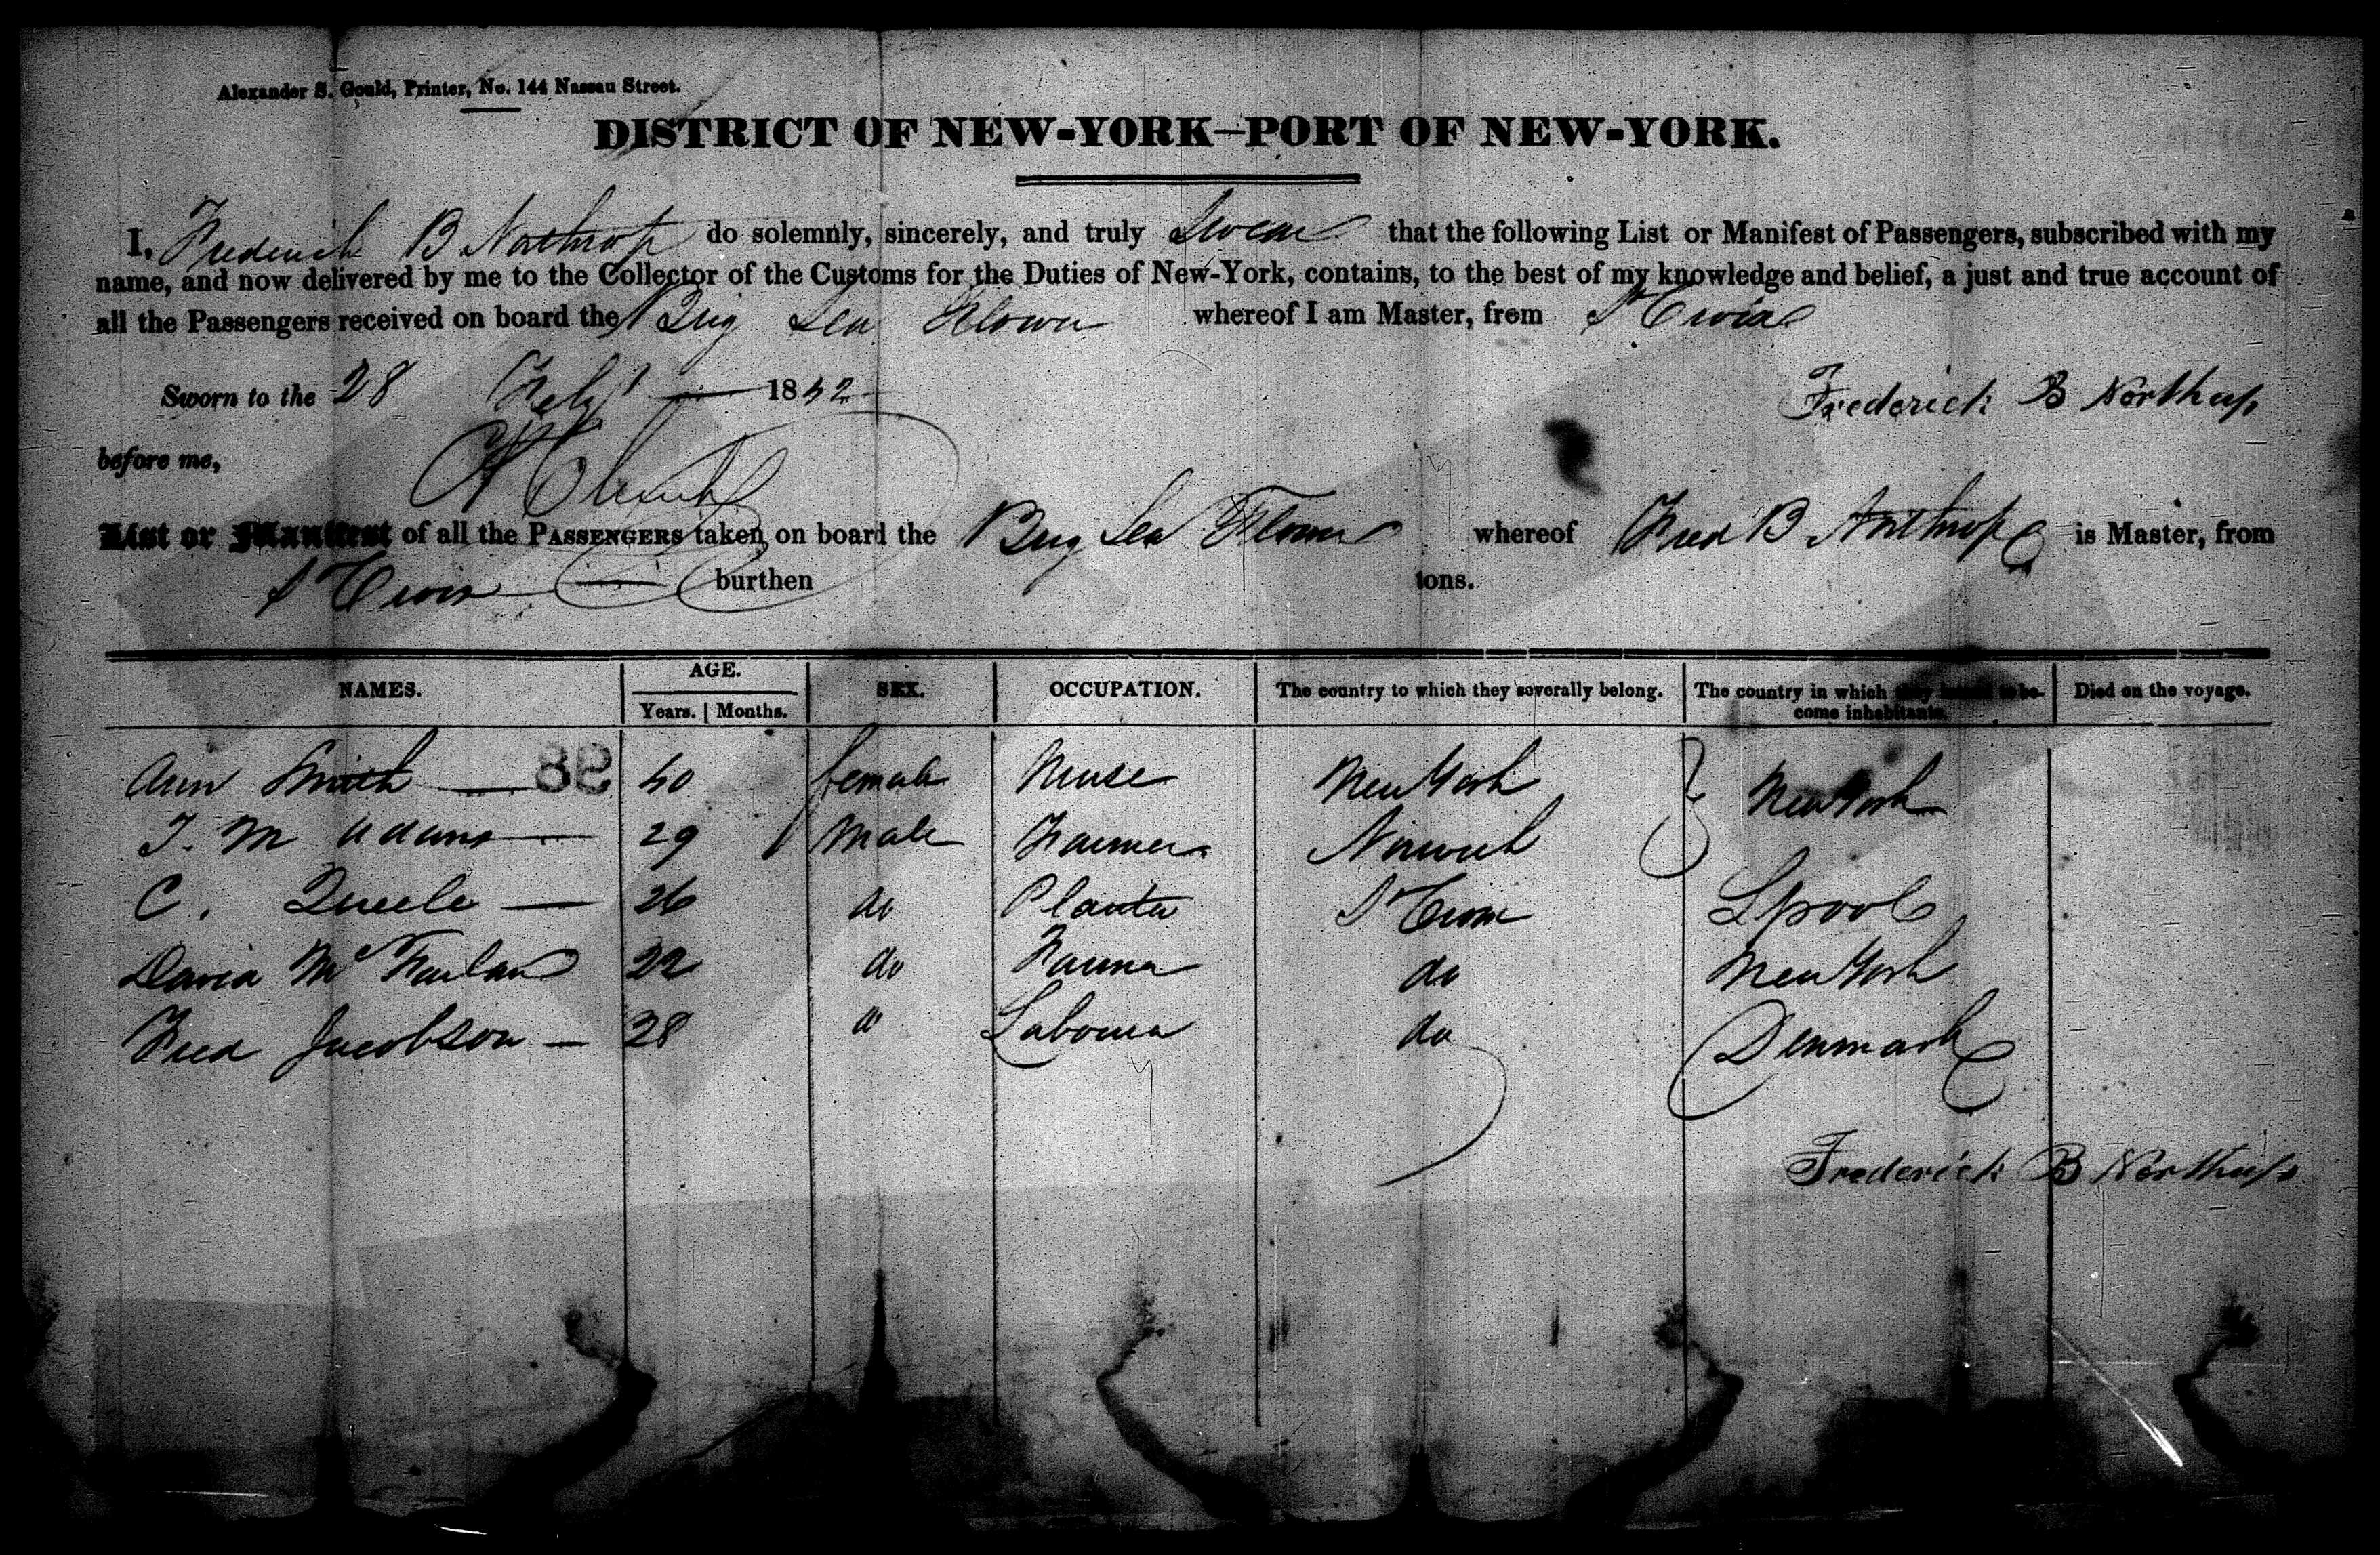 Alexander S. Gould, Printer, No. 144 Nassau Street.
DISTRICT OF NEW-YORK—PORT OF NEW-YORK.
I, Frederick B Northrop do solemnly, sincerely, and truly Swear that the following List or Manifest of Passengers, subscribed with my
name, and now delivered by me to the Collector of the Customs for the Duties of New-York, contains, to the best of my knowledge and belief, a just and true account of
all the Passengers received on board the Brig Sea Flower whereof I am Master, from St Croix
Sworn to the 28 Feby 1852 Frederick B Northup
before me,
List or Manifest of all the PASSENGERS taken on board the Brig Sea Flower whereof Fred B Northrop is Master, from
St Croix burthen tons.
NAMES. AGE. Years. Months. SEX. OCCUPATION. The country to which they severally belong. The country in which they intend to become inhabitants. Died on the voyage.
Ann Smith — 88 40 female Nurse New York New York
T. M Adams — 29 Male Farmer Norwich
C. — 26 do Planter St Croix Lpool
David McFarland 22 do Farmer do New York
Fred Jacobson — 28 do Labourer do Denmark
Frederick B Northup